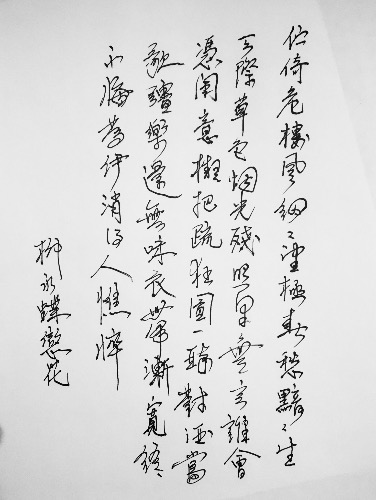 伫倚危樓風細〻望極春愁黯〻生
天際草色烟光殘照里無言誰會
憑闌意擬把疏狂圖一醉對酒當
歌彊樂還無味衣帶漸寬終
不悔為伊消得人憔悴
柳永蝶戀花